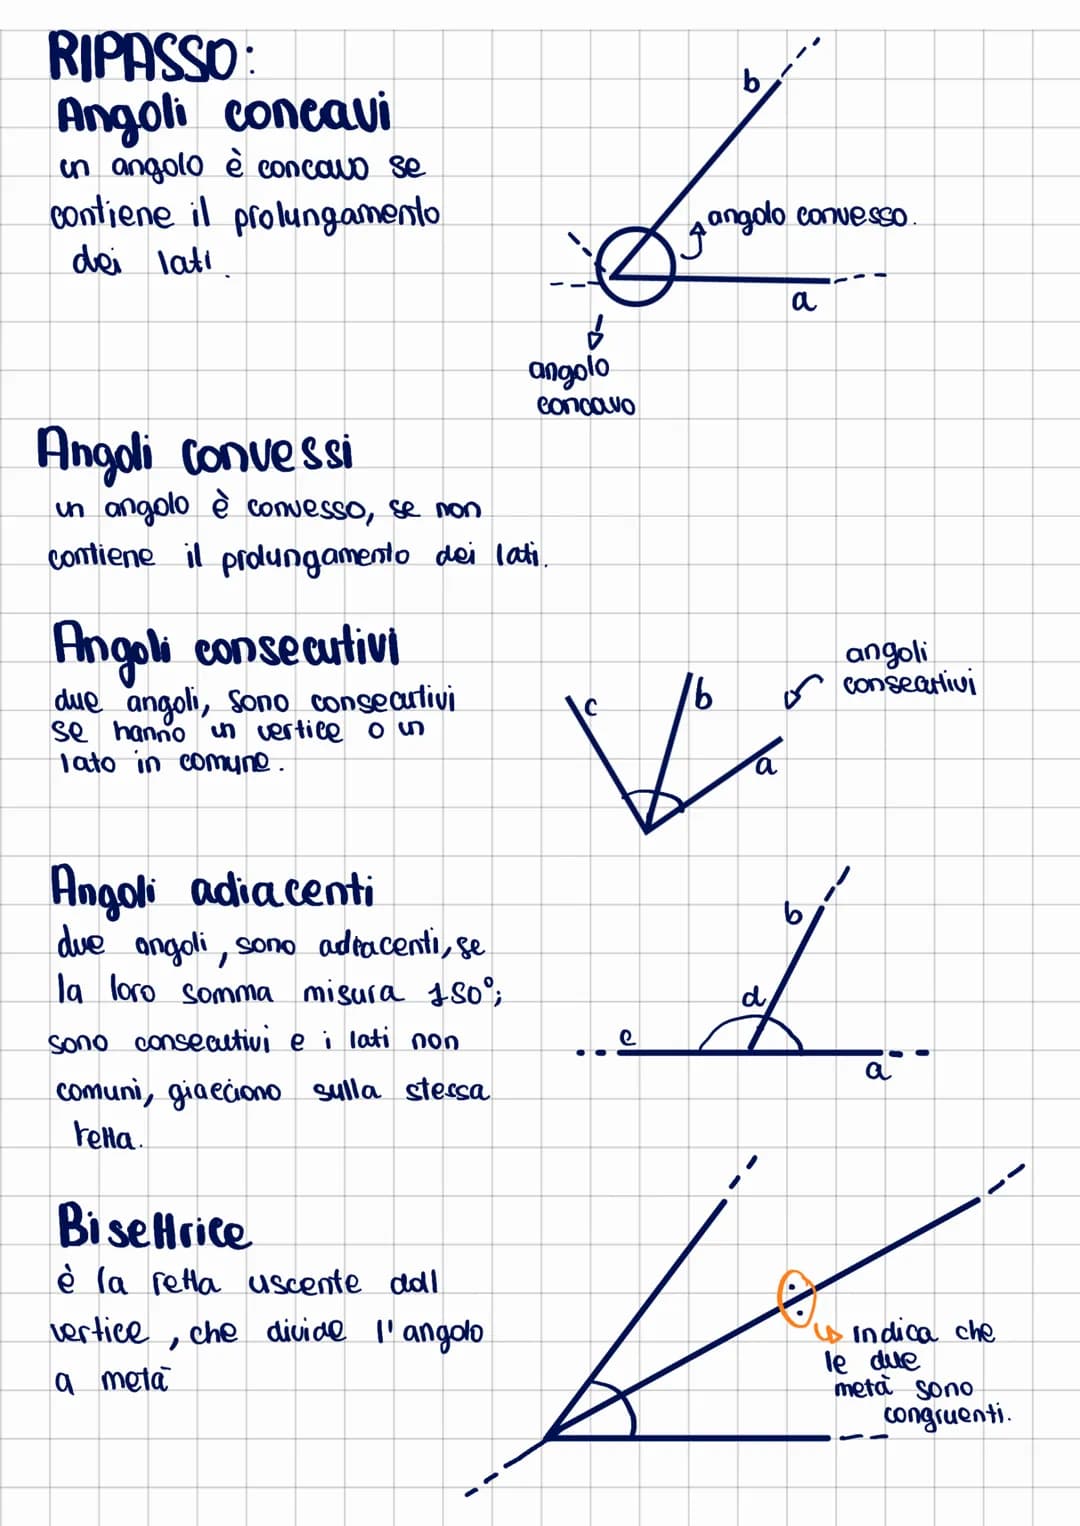 RIPASSO:
Angoli concavi
un angolo è concavo se
contiene il prolungamento
dei lati.
b
angolo convesso.
a
angolo
concavo
Angoli convessi
un angolo è convesso, se non
contiene il prolungamento dei lati.
Angoli consecutivi
due angoli, sono consecutivi
se hanno un vertice o un
lato in comune.
c
b
a
angoli
consecutivi
Angoli adiacenti
due angoli, sono adiacenti, se
la loro somma misura 180°;
sono consecutivi e i lati non
comuni, giacciono sulla stessa
retta.
b
d
e
a
Bisettrice
è la retta uscente dall
vertice, che divide l'angolo
a metà
indica che
le due
metà sono
congruenti.